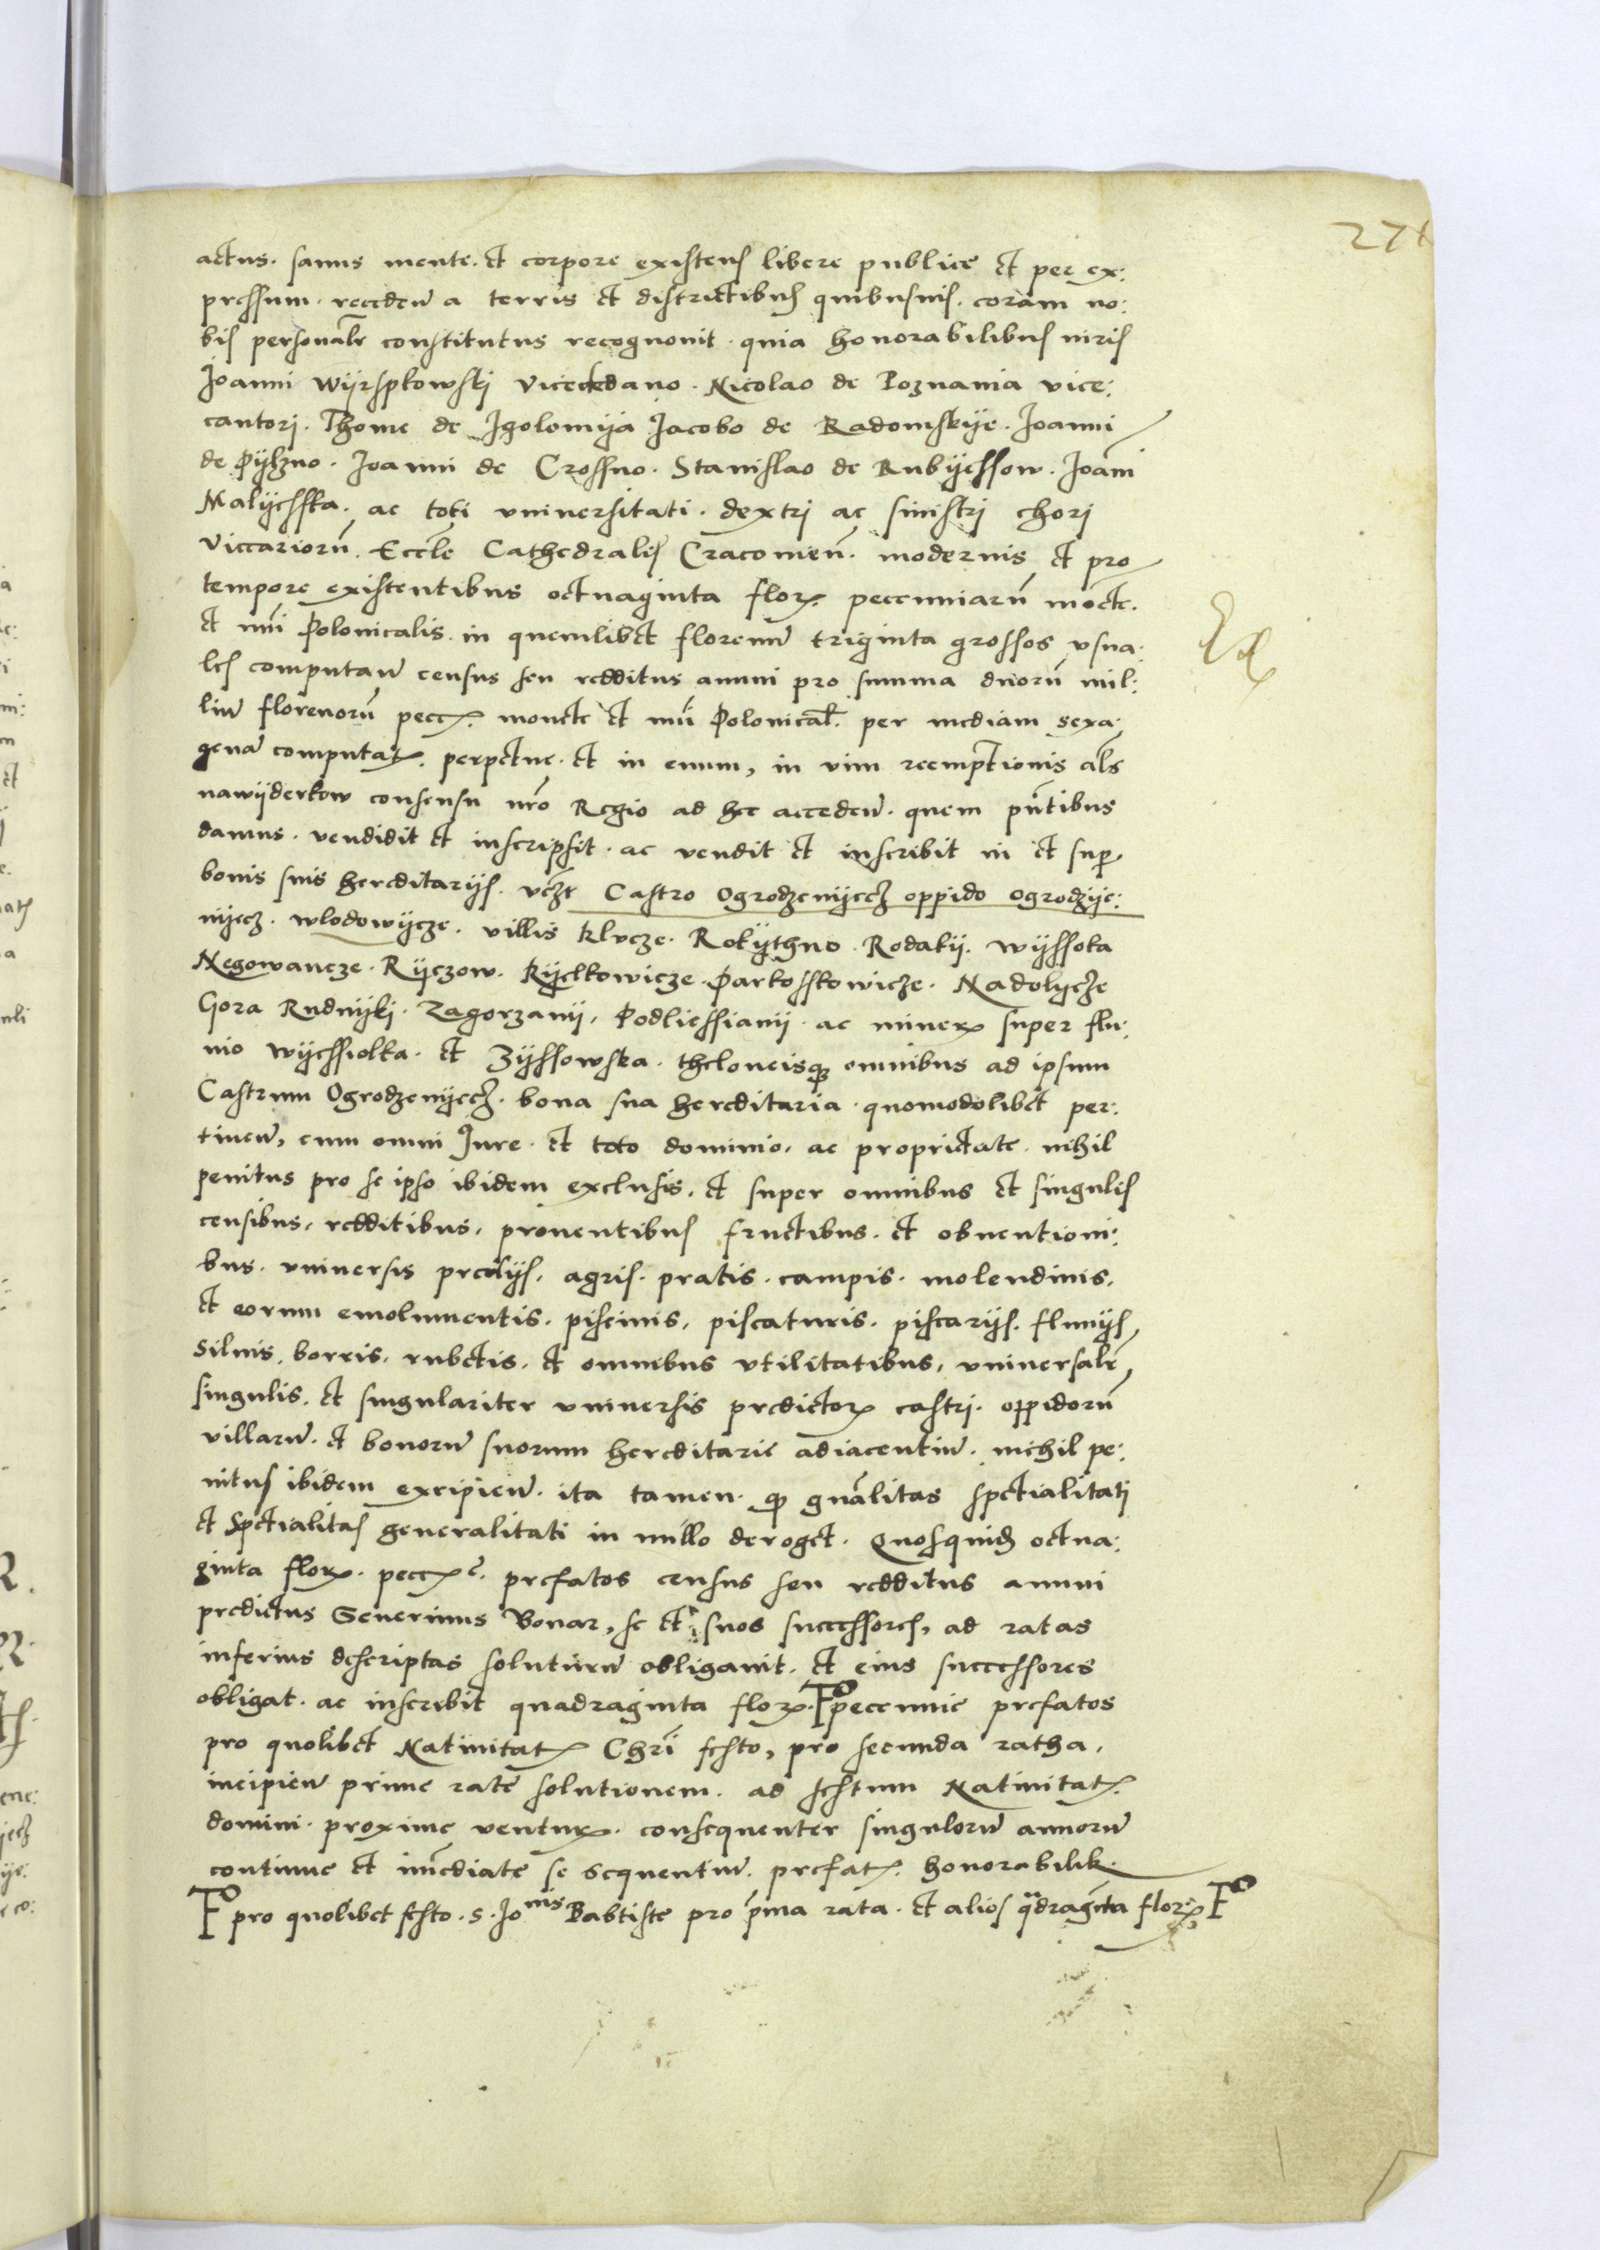 271
actus. sanus mente. et corpore existens libere publice et per ex:
pressum. receden̄ a terris et districtibus quibusuis. coram no:
bis personalr̄ constitutus recognouit. quia honorabilibus uiris
Joanni Wyrspkowskj Vicedecano. Nicolao de Poznania vice:
cantorj. Thome de Jgolomÿa Jacobo de Radomskÿe. Joanni
de Pÿlzno. Joanni de Crossno. Stanislao de Rubÿessow. Joāni
Malÿesska. ac toti vniuersitati. dextrj ac sinistrj chorj
Viccariorū. Eccl̄e Cathedralis Cracouien̄. modernis et pro
tempore existentibus octuaginta florꝝ. peccuniarū mocte.
et nūi Polonicalis. in quemlibet florenū triginta grossos vsua:
les computan̄ census seu redditus annui pro summa duorū mil:
liū florenorū pecc. monete et nūi Polonical̄. per mediam sexa:
genā computatꝝ. perpetue. et in euum, in vim reemptionis al̄s
nawÿderkow consensu nr̄o Regio ad hec acceden̄. quem pn̄tibus
damus. vendidit et inscripsit. ac vendit et inscribit in et super
bonis suis hereditarÿs. vcz̄t Castro Ogrodzenÿecz oppido ogrodzÿe:
nÿecz. wlodowÿcze. villis Klvcze. Rokÿthno. Rodakÿ. wÿssoka
Negowancze. Rÿczow. Kÿelkowicze. Parkosskowicze. Nadolÿcze
Gora Rudnÿkj. Zagorzanÿ. Podliessianÿ. ac minerꝝ super flu:
uio wÿessiolka. et Zÿssowska. theloneisqꝫ omnibus ad ipsum
Castrum Ogrodzenÿecz. bona sua hereditaria. quomodolibet per:
tinen̄, cum omni Jure. et toto dominio. ac proprietate. nihil
penitus pro se ipso ibidem exclusis. et super omnibus et singulis
censibus, redditibus, prouentibus fructibus. et obuentioni:
bus. vniuersis predÿs. agris. pratis. campis. molendinis.
et eorum emolumentis. piscinis, piscaturis. piscarÿs. fluuÿs,
Siluis. borris. rubetis. et omnibus vtilitatibus, vniuersalr̄,
singulis. et singulariter vniuersis predictorꝝ castrj. oppidorū
villarū. et bonorū suorum hereditarie adiacentiū. nichil pe:
nitus ibidem excipien̄. ita tamen. qꝫ gn̄alitas spetialitati
et Spetialitas generalitati in nullo deroget. Quosquidē octua:
ginta florꝝ. pecc. prefatos census seu redditus annui
predictus Seuerinus Bonar, se et suos successores, ad ratas
inferius descriptas soluturū obligauit. et eius successores
obligat. ac inscribit quadraginta florꝝ. peccunie prefatos
pro quolibet Natiuitatꝭ Chr̄i festo, pro secunda ratha.
incipien̄ prime rate solutionem. ad festum Natiuitatꝭ.
domini. proxime venturꝝ. consequenter singulorū annorū
continue et īmediate se sequentiū. prefatꝭ. honorabilibꝰ.
pro quolibet festo. S. Joīnis Babtiste pro p̄ma rata. et alios q̄dragīnta florꝝ.